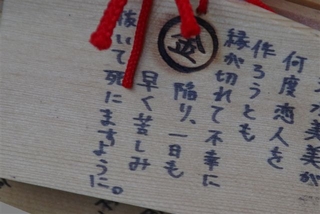 美美が
何度恋人を
作ろうとも
縁が切れて不幸に
陥り、一日も
早く苦しみ
抜いて死にますように。
金